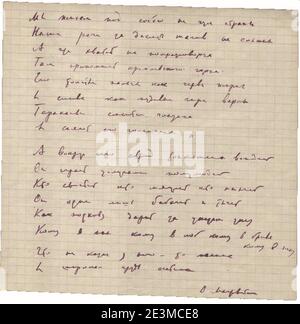 Мы живем под собою не чуя страны
Наши речи за десять шагов не слышны
А где хватит на полразговорца
Там припомнят кремлевского горца
Его толстые пальцы как черви жирны
И слова как пудовые гири верны
Тараканьи смеются глазища
И сияют его голенища
А вокруг него сброд тонкошеих вождей
Он играет услугами полулюдей
Кто свистит кто мяучит кто хнычет
Он один лишь бабачит и тычет
Как подкову дарит за указом указ
Кому в пах кому в лоб кому в бровь
кому в глаз
Что ни казнь у него - то малина
И широкая грудь осетина
О. Мандельштам
alamy
Image ID: 2E3MCE8
www.alamy.com